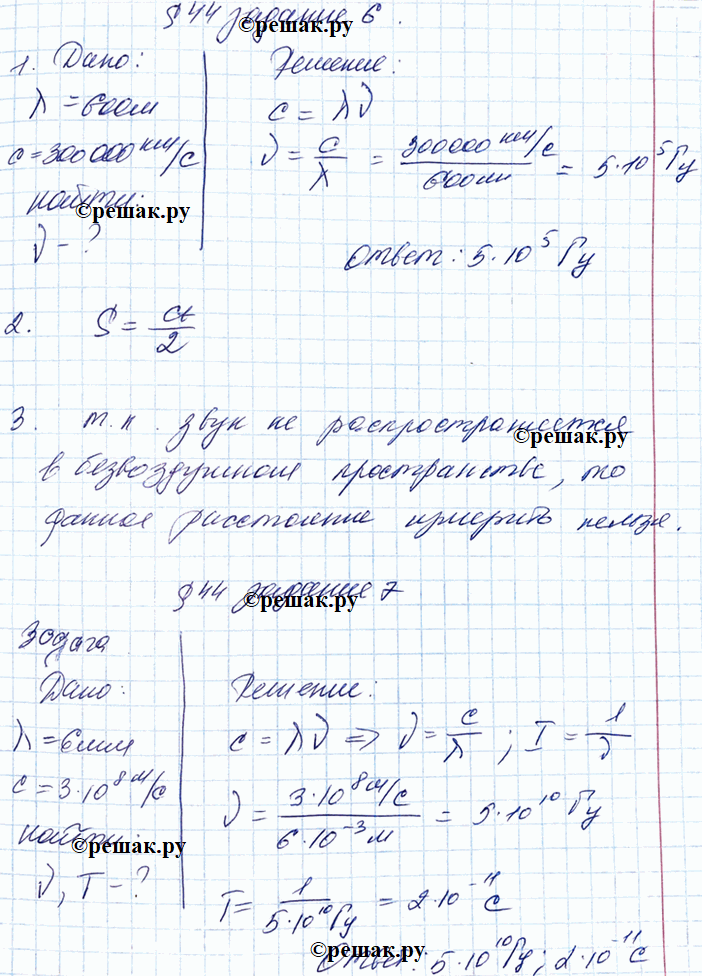 § 44 задание 6.
©решак.ру
1. Дано:
λ = 600м
c = 300000 км/с
найти:
©решак.ру
ν - ?
Решение:
c = λν
ν = c/λ = 300000 км/с / 600м = 5·10⁵ Гц
Ответ: 5·10⁵ Гц
2. S = ct/2
3. т.к. звук не распространяется
©решак.ру
в безвоздушном пространстве, то
данное расстояние измерить нельзя.
§ 44 задание 7
©решак.ру
Задача
Дано:
λ = 6мм
c = 3·10⁸ м/с
найти:
©решак.ру
ν, T - ?
Решение:
c = λν => ν = c/λ ; T = 1/ν
ν = 3·10⁸ м/с / 6·10⁻³ м = 5·10¹⁰ Гц
T = 1 / 5·10¹⁰ Гц = 2·10⁻¹¹ с
©решак.ру
Ответ: 5·10¹⁰ Гц; 2·10⁻¹¹ с